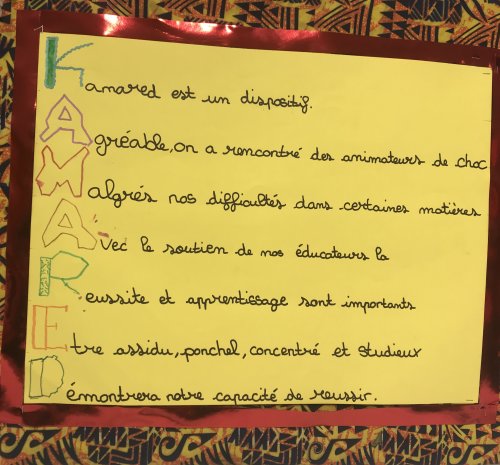 Kamared est un dispositif.
Agréable, on a rencontré des animateurs de choc
Malgrés nos difficultés dans certaines matières
Avec le soutien de nos éducateurs la
Reussite et apprentissage sont importants
Etre assidu, ponchel, concentré et studieux
Démontrera notre capacité de reussir.